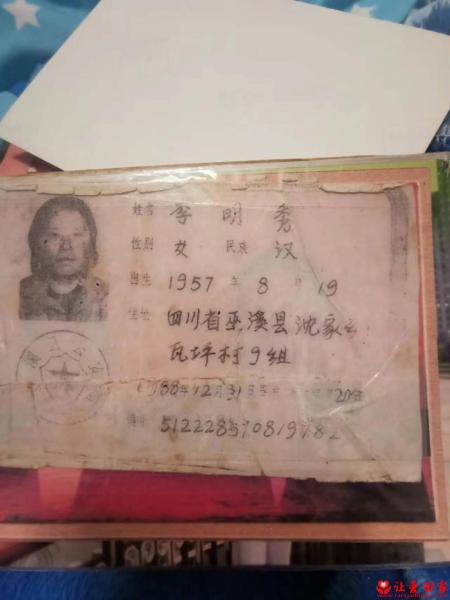 姓名 李明秀
性别 女 民族 汉
出生 1957 年 8 月 19
住址 四川省巫溪县沈家
瓦坪村9组
1988年12月31
编号 512228570819782
让爱回家